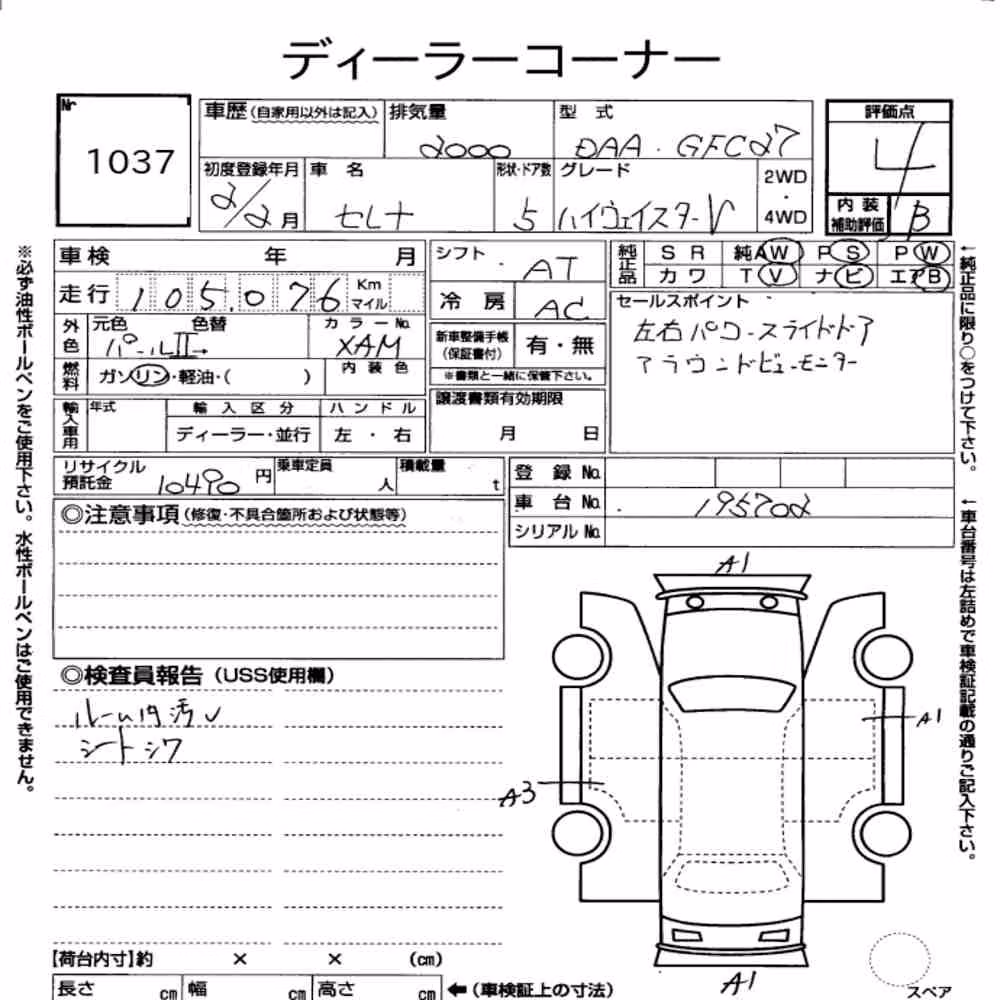 ディーラーコーナー
Nr 1037
車歴(自家用以外は記入) 排気量 2000 型 式 DAA・GFC27
評価点 4
初度登録年月 2/2月 車 名 セレナ 形状・ドア数 5 グレード ハイウェイスターV 2WD・4WD
内装補助評価 B
車検 年 月
走行 105,076 Km マイル
外色 元色 色替 パールⅡ カラーNo. XAM
燃料 ガソリン・軽油・( ) 内装色
輸入車用 年式 輸入区分 ディーラー・並行 ハンドル 左・右
シフト AT
冷房 AC
新車整備手帳(保証書付) 有・無
※書類と一緒に保管下さい。
譲渡書類有効期限
月 日
純正品 SR 純AW PS PW
カワ TV ナビ エアB
セールスポイント
左右パワースライドドア
アラウンドビューモニター
リサイクル預託金 10490円 乗車定員 人 積載量 t
登録No.
車台No. 195702
シリアルNo.
◎注意事項(修復・不具合箇所および状態等)
◎検査員報告(USS使用欄)
ルーム内汚レ
シートシワ
A1
A1
A3
A1
【荷台内寸】約 × × (cm)
長さ cm 幅 cm 高さ cm ←(車検証上の寸法)
スペア
※必ず油性ボールペンをご使用下さい。水性ボールペンはご使用できません。
←純正品に限り○をつけて下さい。
←車台番号は左詰めで車検証記載の通りご記入下さい。